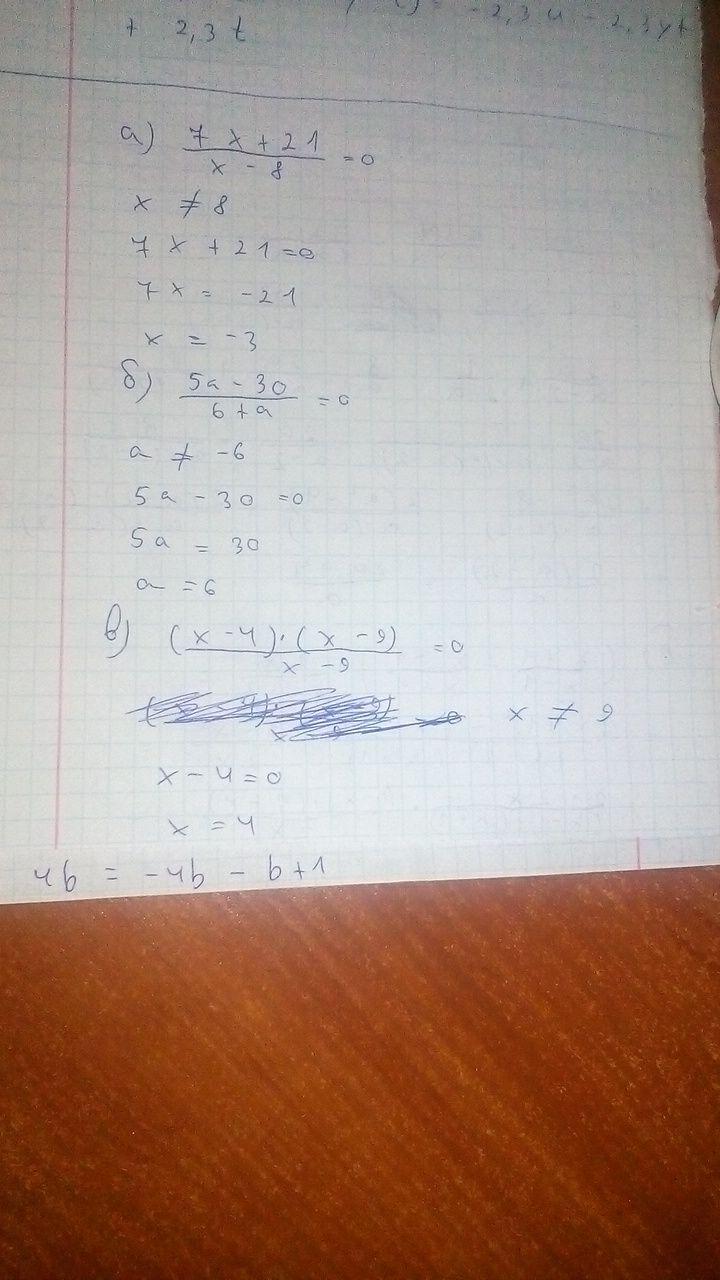 = -2,3u - 2,3y+
+ 2,3t
а) (7x+21)/(x-8) =0
x ≠ 8
7x+21=0
7x = -21
x = -3
б) (5a-30)/(6+a) =0
a ≠ -6
5a-30=0
5a = 30
a = 6
в) ((x-4)·(x-9))/(x-9) =0
x ≠ 9
x-4=0
x = 4
4b = -4b - b+1